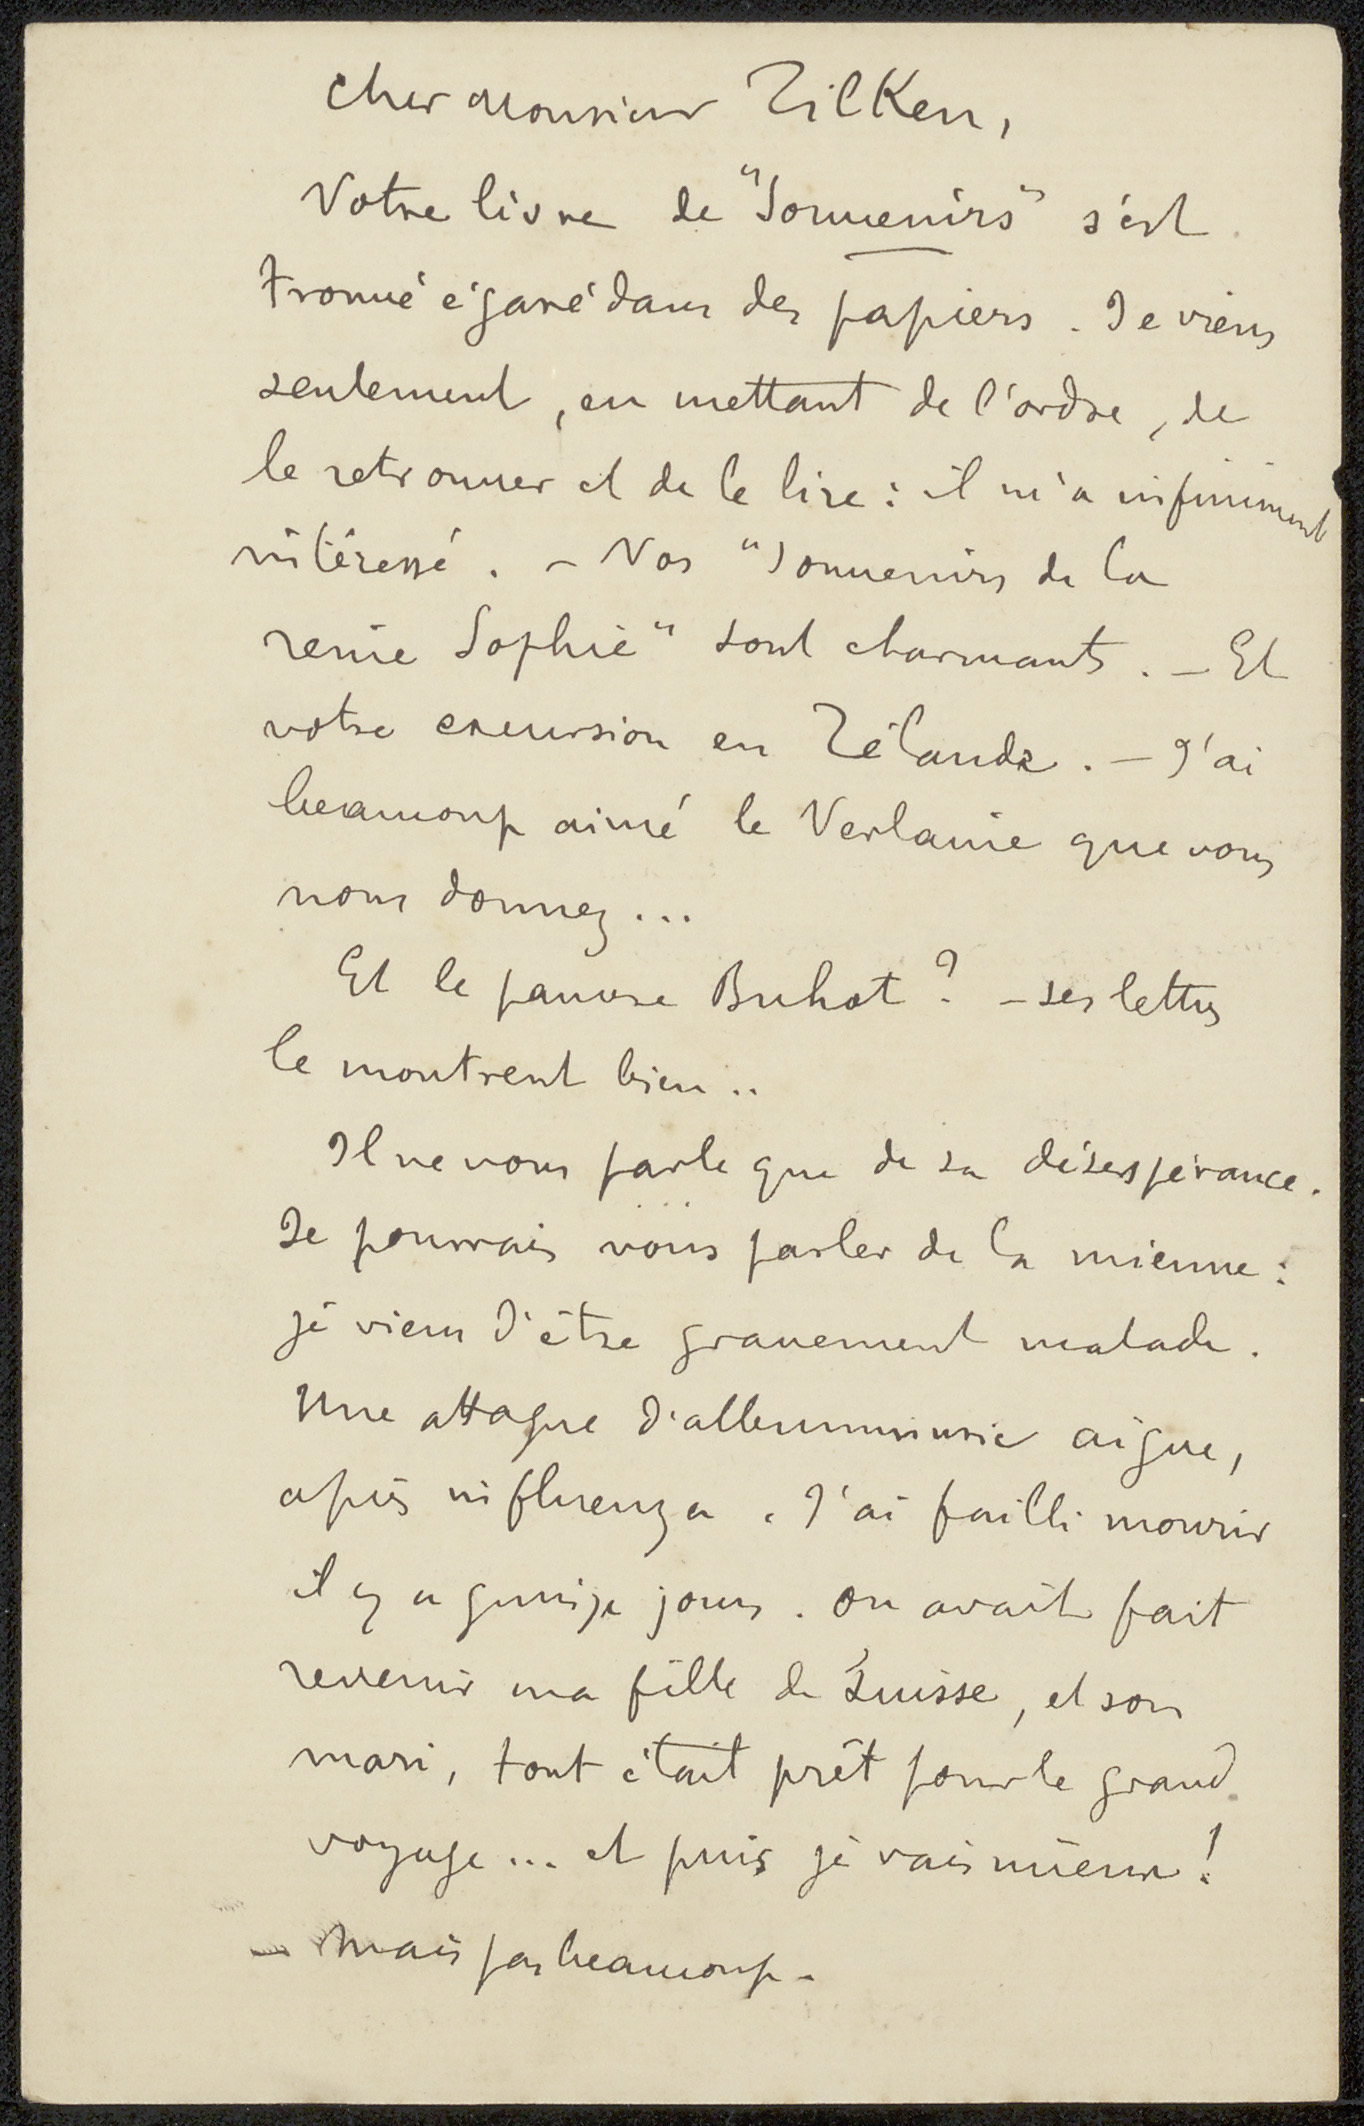 Cher Monsieur Zilken,
Votre livre de "Souvenirs" s'est
trouvé égaré dans des papiers. Je viens
seulement, en mettant de l'ordre, de
le retrouver et de le lire : il m'a infiniment
intéressé. – Vos "Souvenirs de la
reine Sophie" sont charmants. – Et
votre excursion en Zélande. – J'ai
beaucoup aimé le Verlaine que vous
nous donnez...
Et le pauvre Buhot ? – ses lettres
le montrent bien..
Il ne vous parle que de sa désespérance.
Je pourrais vous parler de la mienne :
je viens d'être gravement malade.
Une attaque d'albuminurie aigue,
après influenza. J'ai failli mourir
il y a quinze jours. On avait fait
revenir ma fille de Suisse, et son
mari, tout était prêt pour le grand
voyage... et puis je vais mieux !
– Mais pas beaucoup.